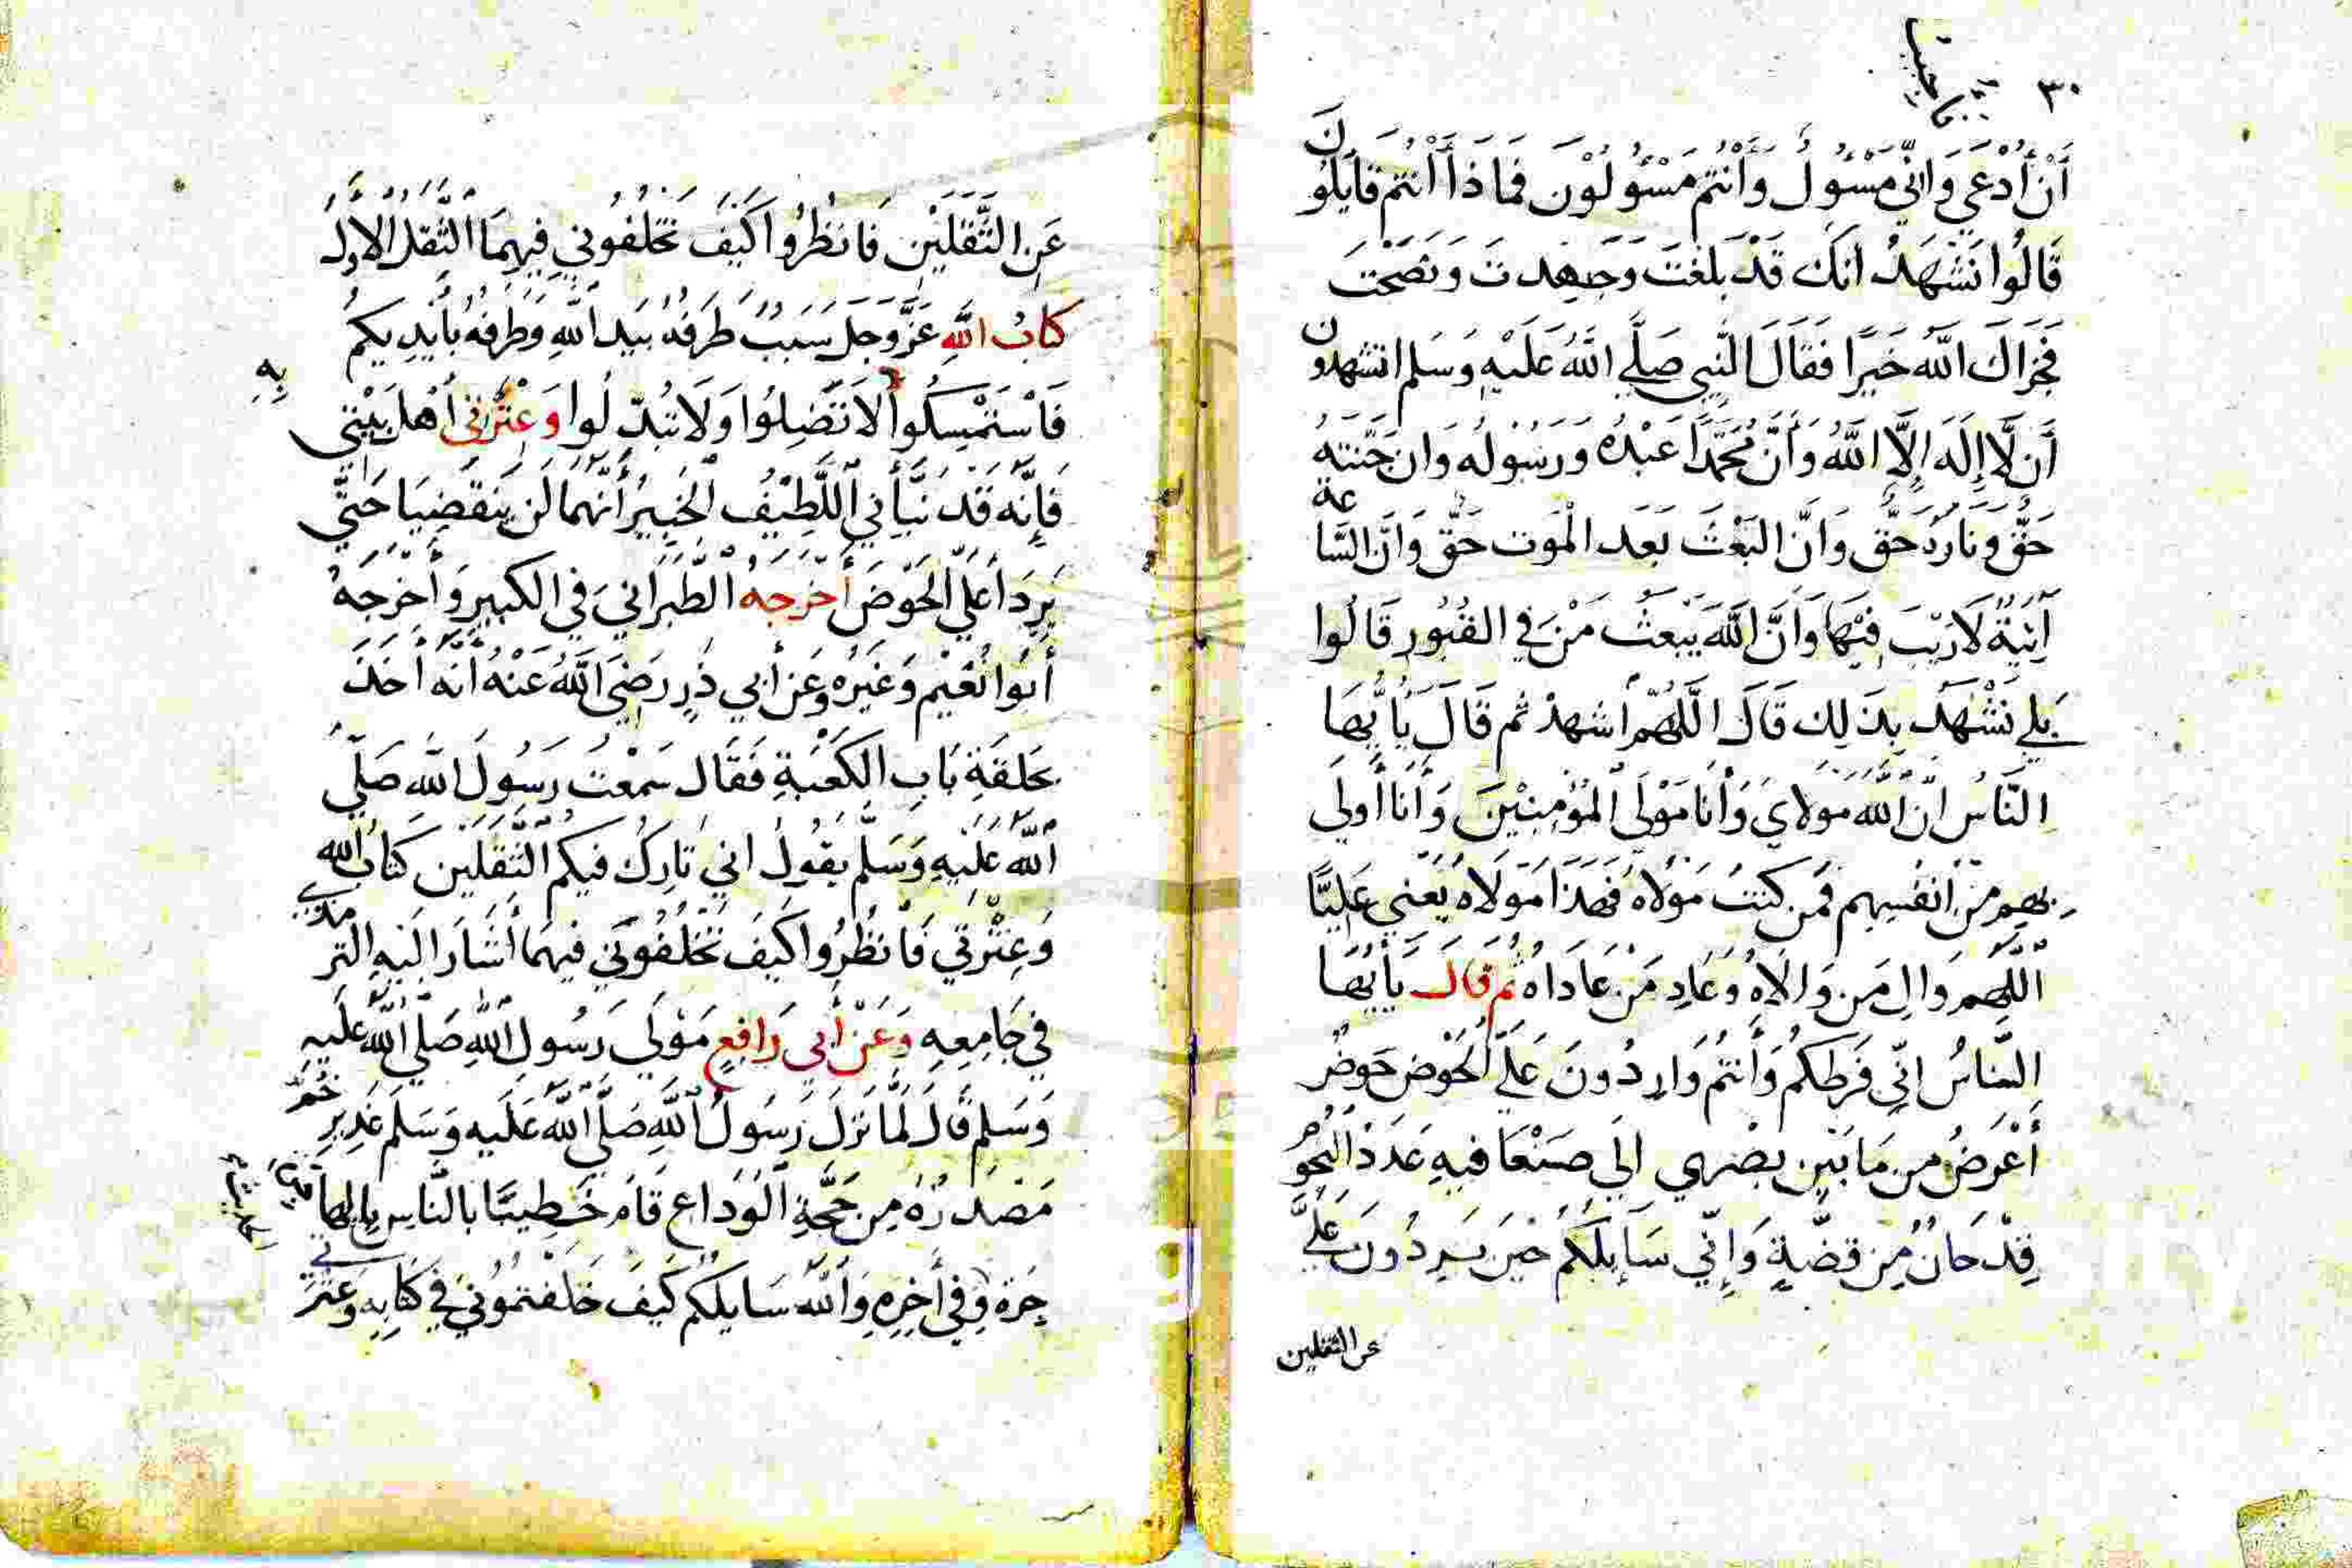 ٣٠
أَنْ أُدْعَي وَانِّي مَسْئُولٌ وَأَنْتُمْ مَسْئُولُوْنَ فَمَا ذَا أَنْتُمْ قَايِلُونَ
قَالُوا نَشْهَدُ انَكَ قَدْ بَلَغْتَ وَجَهِدتَ وَنَصَحْتَ
فَجَزَاكَ اللَّهُ خَيرًا فَقَالَ النَّبِي صَلَّي اللَّهُ عَلَيْهِ وَسَلم اتشهدون
أَن لَّا إِلَهَ إِلَّا اللَّهُ وَأَنَّ مُحَمَّدًا عَبْدُهُ وَرَسُولُهُ وَان جَنَّتهُ
حَقٌّ وَنَارَهُ حَقٌّ وَانَّ البَعْثَ بَعَد الْمَوت حَقٌّ وَانَّ السَّاعة
آتِيَةٌ لَارَيْبَ فِيهَا وَأَنَّ اللَّهَ يَبْعَثُ مَنْ فِي القُبُورِ قَالُوا
بَلي نَشْهَدُ بِذَلِك قَالَ اللَّهُمَّ اشهدْ ثم قَالَ يَا أَيُّهَا
النَّاسُ انَّ اللَّه مَولايَ وَأَنَا مَوْلَي الْمُؤْمِنِيْنَ وَأَنَا أَولَي
بهِم مِنْ أَنفُسِهِم فَمن كنتُ مَوْلَاهُ فَهَذَا مَوْلَاهُ يَعْنِي عَلِيًّا
اللَّهُم وَالِ مَن وَالَاهُ وَعَادِ مَنْ عَادَاهُ ثم قال يَأَيُّهَا
النَّاسُ انِّي فَرَطكُم وَأَنتُم وَارِدُونَ عَلَيَّ الْحَوْض حَوضٌ
أَعْرَضُ مِن مَا بَيْن بصْري الَي صَنْعَا فيهِ عَدَدْ النُّجُوُم
قِدْحَانٌ مِن فِضَّةٍ وَإِنِّي سَايِلُكُم حَيْنَ يَرِدُونَ عَلَيَّ
عن الثقلين
عَنِ الثَّقَلَيْن فَانظُرُوا كَيفَ تخلُفُونِي فِيهِمَا الثَّقلُ الاولُ
كتابُ اللَّهِ عَزَّوَجَل سَبَبٌ طَرَفهُ بيَد اللَّهِ وَطَرفهُ بأَيْدِيكُم
فَاسْتَمْسِكُوا به
أَلا تَضِلُوا وَلَا تبُدِّلُوا وَعِتْرَتي أَهلَ بَيْتِي
فَإِنَّه قَد نَبَّأَنِي اللَّطِيْفُ الْخَبِيرُ أَنَّهُمَا لَن يَنقَضِيَا حَتَّي
يَرِدَا عَلَي الْحَوْضَ أَخْرَجَهُ الطَّبَرَانِي فِي الكبِيرِ وَأَخْرَجَهُ
أَبُوا نُعَيْم وَغَيْرُه وعَن أَبِي ذَرٍ رَضَيَ اللَّهُ عَنْهُ أَنَّه أَخَذَ
بحَلقَةِ بَابِ الكَعْبَةِ فَقَال سَمِعْتُ رَسُولَ اللَّه صَلَّي
اللَّهُ عَلَيْهِ وَسَلَّم يقُولُ اني تَارِكٌ فيكم الثَّقَلَيْن كتابُ الله
وَعِتْرتي فَانظُرُوا كَيفَ تَخْلُفُونِي فيهمَا أَشَارَ الَيهِ الترمذي
فِي جَامِعِهِ وَعَنْ أَبِى رَافِعٍ مَوْلَي رَسُولِ اللَّهِ صَلَّي اللَّهُ عَلَيهِ
وَسَلم قَالَ لَمَّا نَزَلَ رَسُولُ اللَّهِ صَلَّي اللَّهُ عَلَيهِ وَسَلَم غَدِيرِ خُمّ
مَصْدَرُهُ مِن حَجَّةِ الْوَدَاعِ قَامَ خَطِيبًا بالنَّاس بِالهَا
جِرَة وفِي أَخِرِهِ وَاللَّهُ سَايلكُم كَيفَ خَلَفتمُونِي فِي كتَابِهِ وَعتْرَتي